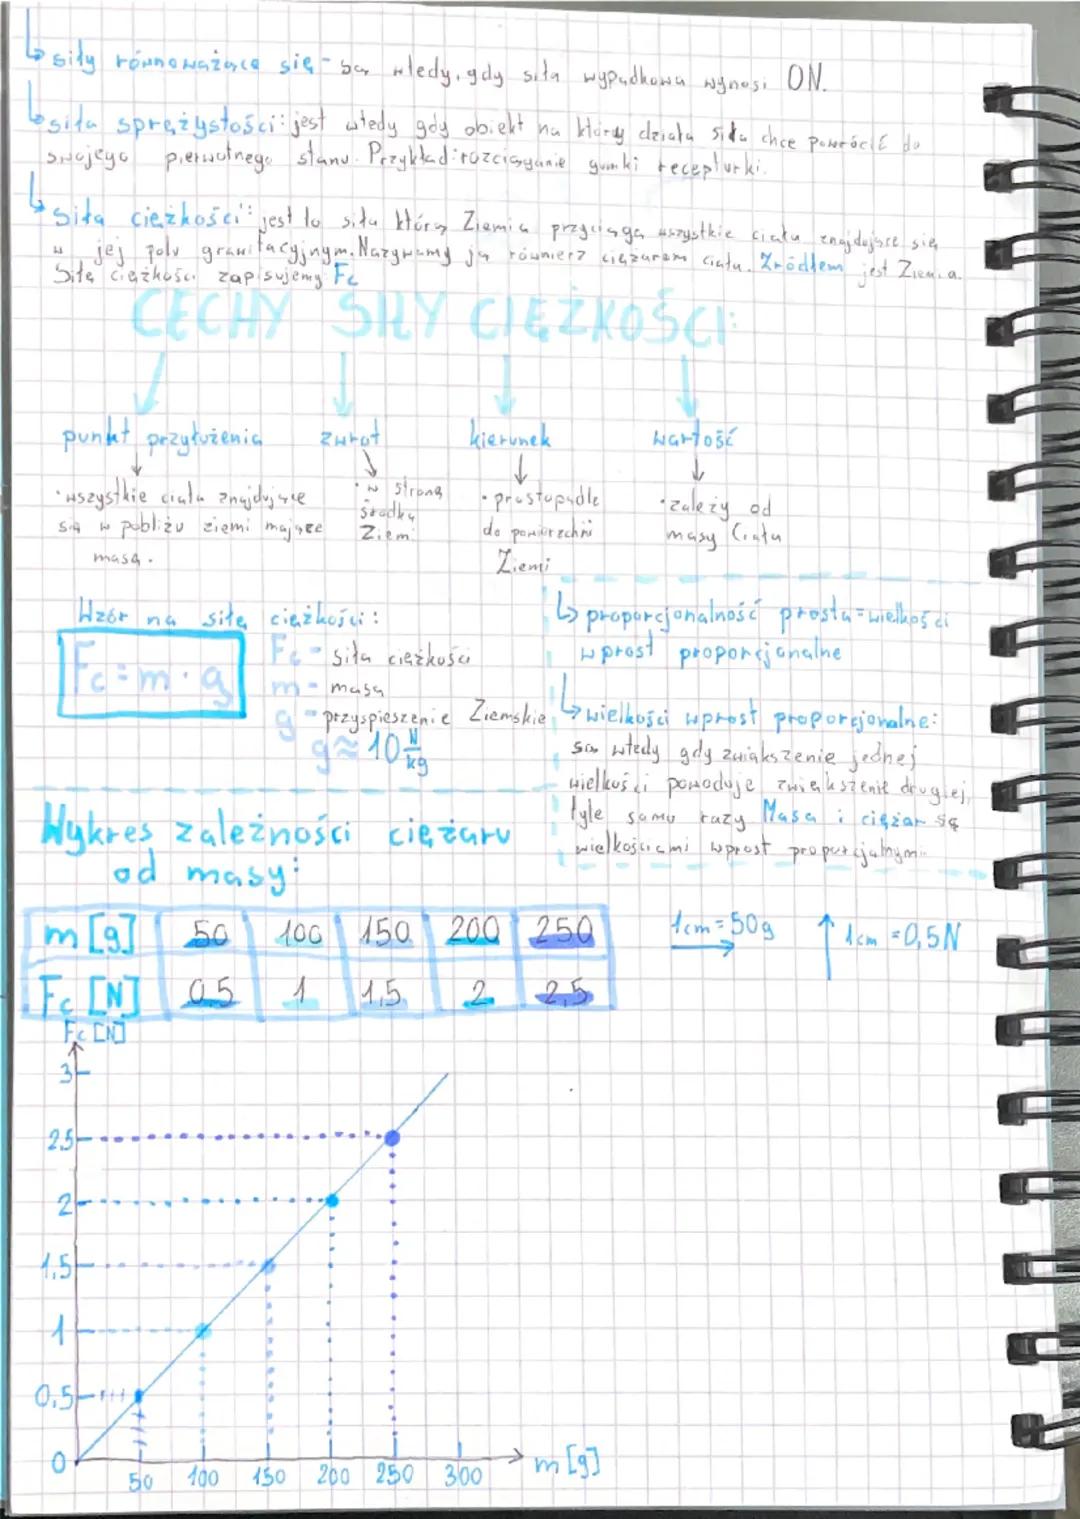 siły równoważące się - są wtedy, gdy siła wypadkowa wynosi 0N.
siła sprężystości: jest wtedy gdy obiekt na który działa siła chce powrócić do
swojego pierwotnego stanu. Przykład: rozciąganie gumki recepturki.
siła ciężkości: jest to siła którą Ziemia przyciąga wszystkie ciała znajdujące się
w jej polu grawitacyjnym. Nazywamy ją równierz ciężarem ciała. Źródłem jest Ziemia.
Siłę ciężkości zapisujemy Fc
CECHY SIŁY CIĘŻKOŚCI:
punkt przyłożenia
zwrot
kierunek
wartość
• wszystkie ciała znajdujące
się w pobliżu ziemi mające
masę.
• w stronę
środka
Ziemi
• prostopadle
do powierzchni
Ziemi
• zależy od
masy Ciała
Wzór na siłę ciężkości:
Fc = m · g
Fc - siła ciężkości
m - masa
g - przyspieszenie Ziemskie
g ≈ 10 N/kg
proporcjonalność prosta = wielkości
wprost proporcjonalne
wielkości wprost proporcjonalne:
są wtedy gdy zwiększenie jednej
wielkości powoduje zwiększenie drugiej,
tyle samo razy Masa i ciężar są
wielkościami wprost proporcjalnymi.
Wykres zależności ciężaru
od masy:
m [g] 50 100 150 200 250
Fc [N] 0,5 1 1,5 2 2,5
1cm = 50g
1cm = 0,5N
Fc [N]
3
2,5
2
1,5
1
0,5
0
50 100 150 200 250 300 m [g]